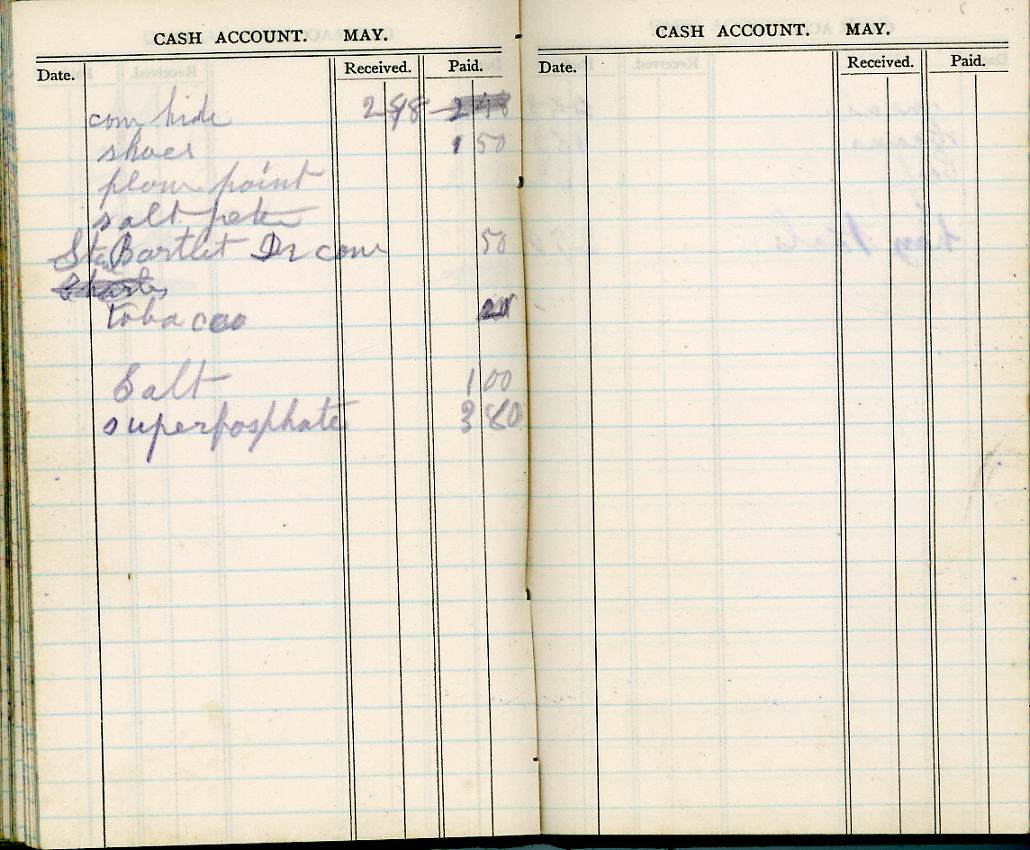 CASH ACCOUNT. MAY.
Date. Received. Paid.
cow hide 2 48
shoes 1 50
plow point
salt peter
Bartlet Dr cow 50
tobacco
Salt 1 00
superposphate 3 80
CASH ACCOUNT. MAY.
Date. Received. Paid.